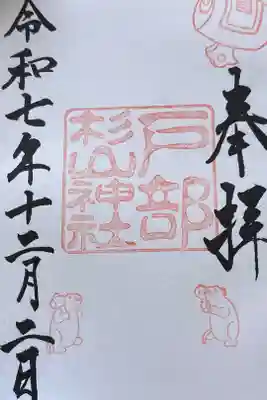 奉拝
戸部
杉山神社
令和七年十二月二日